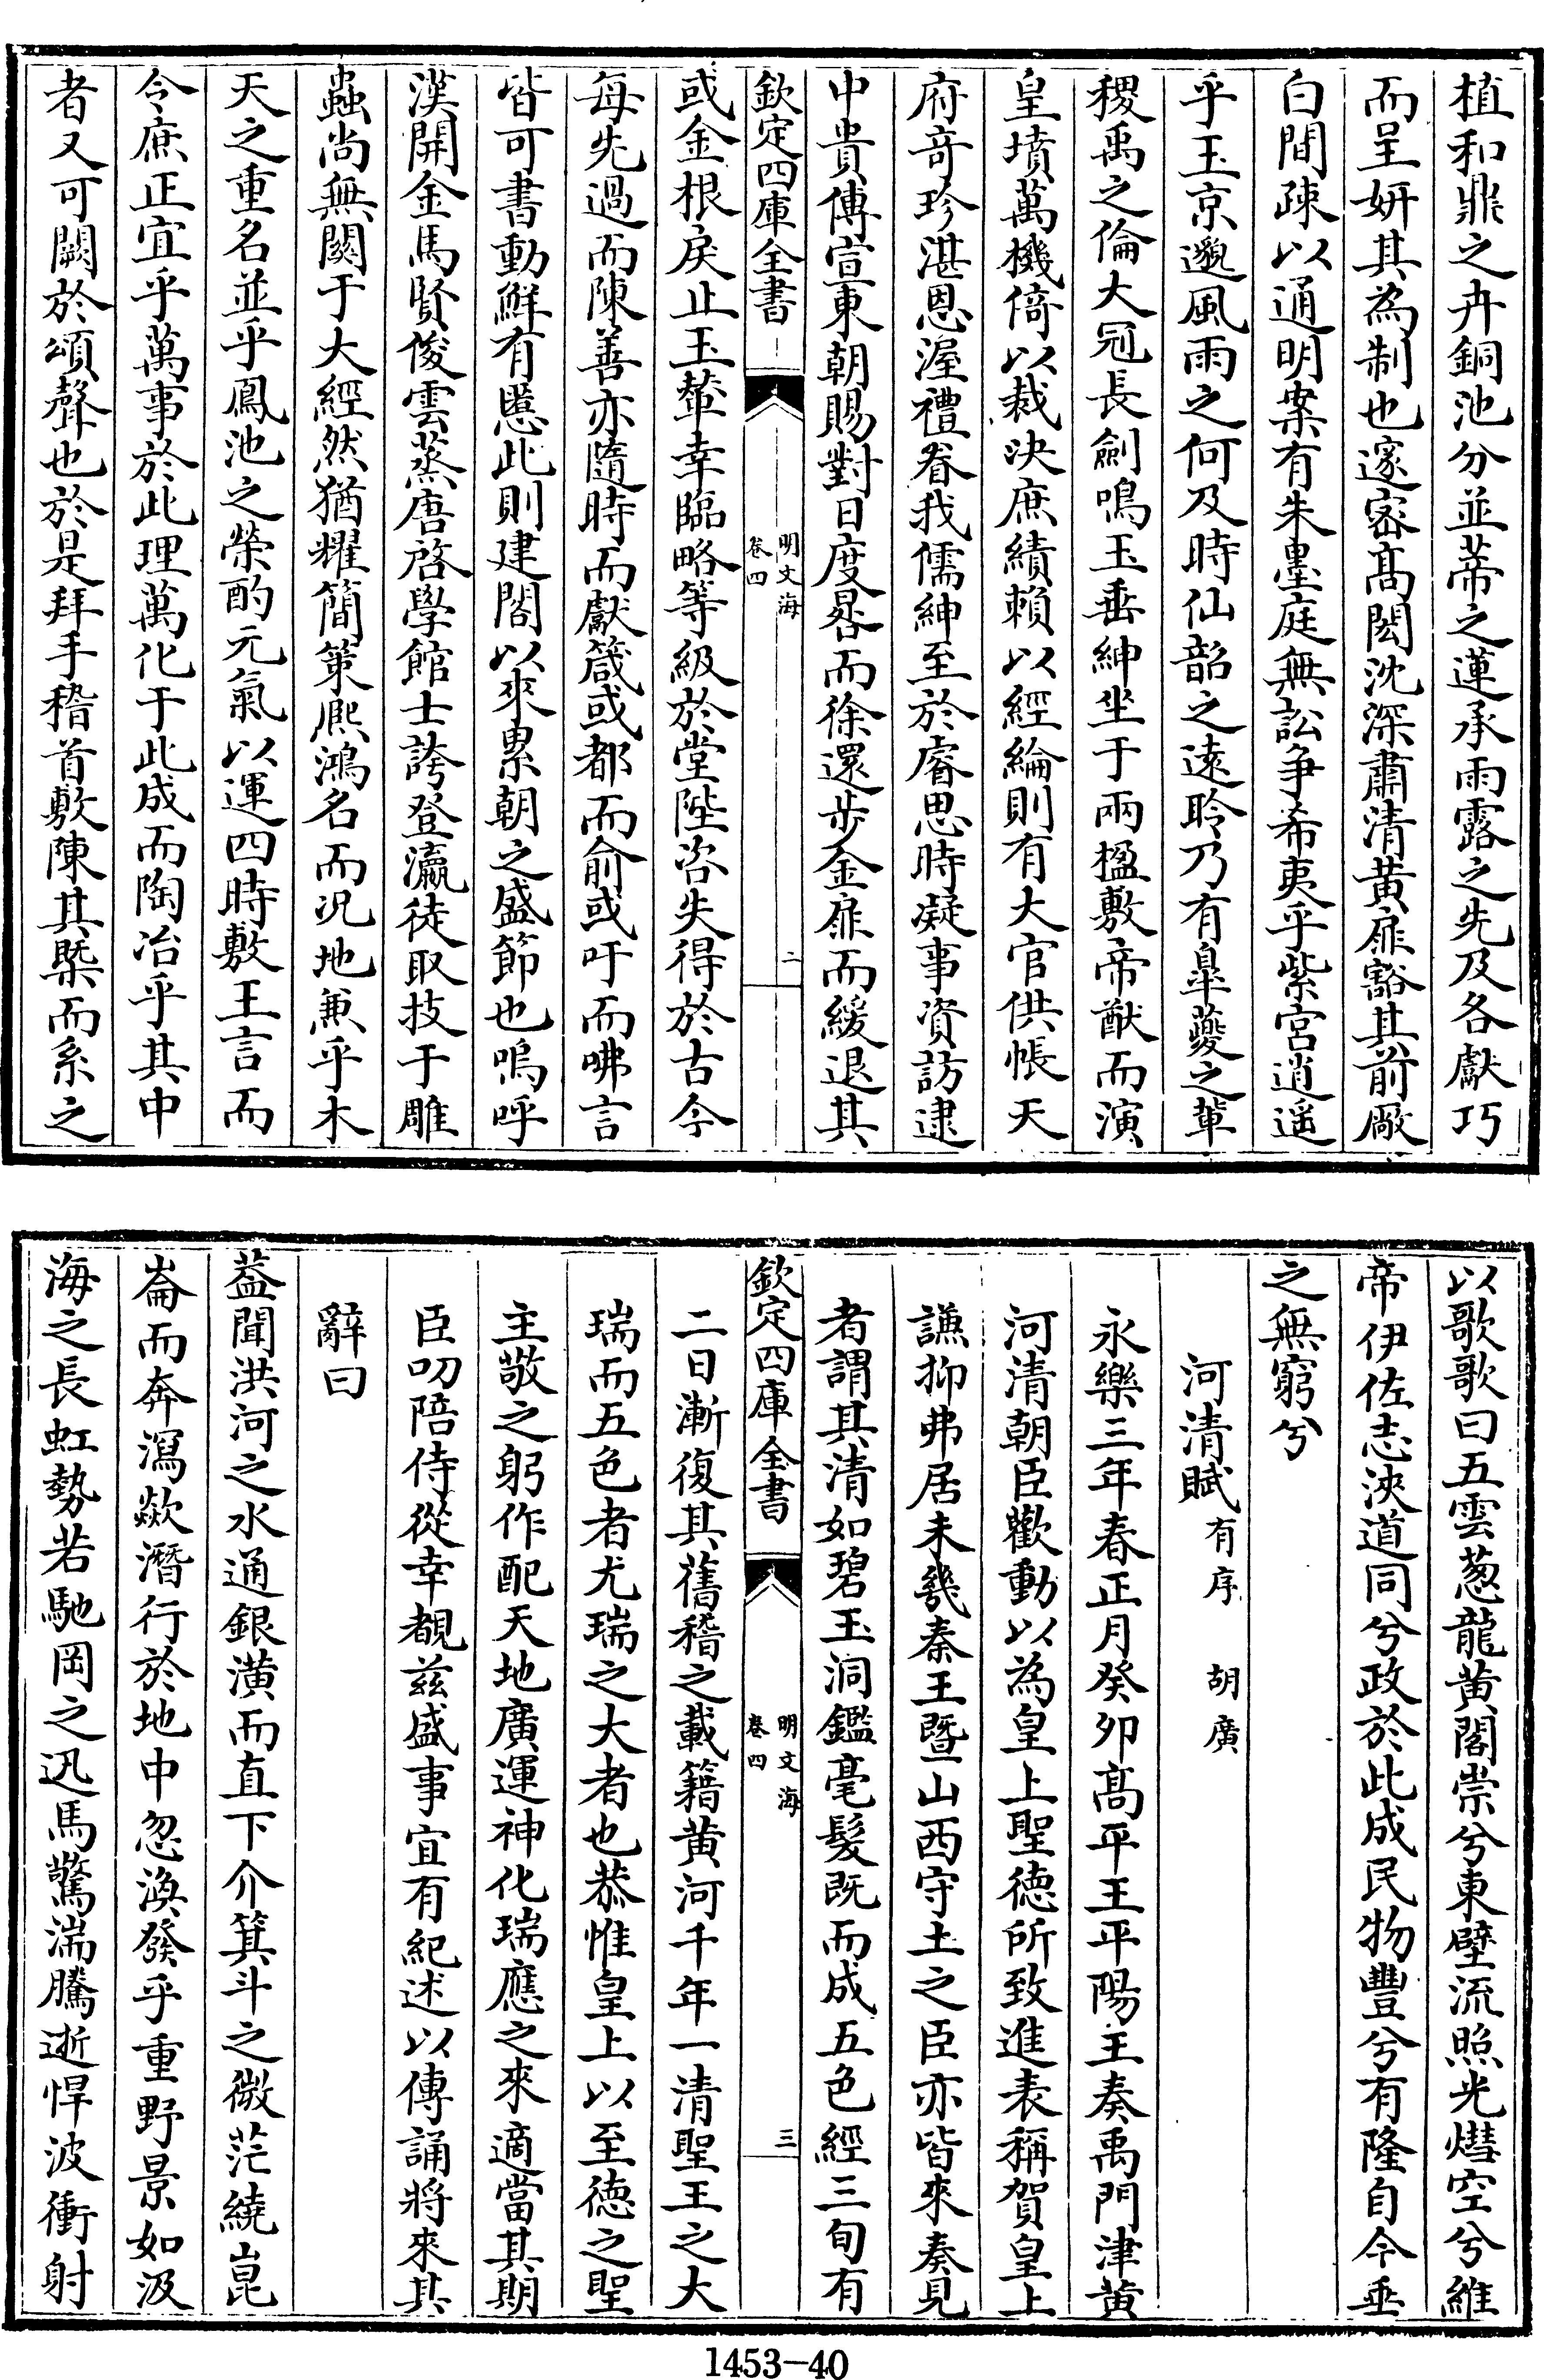 植和鼎之卉銅池分並蒂之蓮承雨露之先及各獻巧
而呈妍其為制也邃密髙閎沈深肅清黄扉豁其前厰
白間疎以通明案有朱墨庭無訟争希夷乎紫宫逍遥
乎玉京邈風雨之何及時仙韶之遠聆乃有臯夔之軰
稷禹之倫大冠長劍鳴玉垂紳坐于兩楹敷帝猷而演
皇墳萬機倚以裁决庶績賴以經綸則有大官供帳天
府竒珍湛恩渥禮眷我儒紳至於睿思時凝事資訪逮
中貴傳宣東朝賜對日度晷而徐還步金扉而緩退其
欽定四庫全書
明文海
卷四
二
或金根戾止玉輦幸臨略等級於堂陛咨失得於古今
每先過而陳善亦隨時而獻箴或都而俞或吁而咈言
皆可書動鮮有慝此則建閣以來累朝之盛節也嗚呼
漢開金馬賢俊雲蒸唐啓學館士誇登瀛徒取技于雕
蟲尚無闕于大經然猶耀簡策熈鴻名而况地兼乎木
天之重名並乎鳳池之榮酌元氣以運四時敷王言而
令庶正宜乎萬事於此理萬化于此成而陶冶乎其中
者又可闕於頌聲也於是拜手稽首敷陳其槩而系之
以歌歌曰五雲葱龍黄閣崇兮東壁流照光熭空兮維
帝伊佐志浹道同兮政於此成民物豐兮有隆自今垂
之無窮兮
河清賦有序 胡廣
永樂三年春正月癸卯髙平王平陽王奏禹門津黄
河清朝臣歡動以為皇上聖德所致進表稱賀皇上
謙抑弗居未㡬秦王暨山西守土之臣亦皆來奏見
者謂其清如碧玉洞鑑毫髮既而成五色經三旬有
欽定四庫全書
明文海
卷四
三
二日漸復其舊稽之載籍黄河千年一清聖王之大
瑞而五色者尤瑞之大者也恭惟皇上以至德之聖
主敬之躬作配天地廣運神化瑞應之來適當其期
臣叨陪侍從幸覩兹盛事宜有紀述以傳誦將來其
辭曰
葢聞洪河之水通銀潢而直下介箕斗之微茫繞崑
崙而奔瀉歘潛行於地中忽渙發乎重野景如汲
海之長虹勢若馳岡之迅馬驚湍騰逝悍波衝射
1453-40